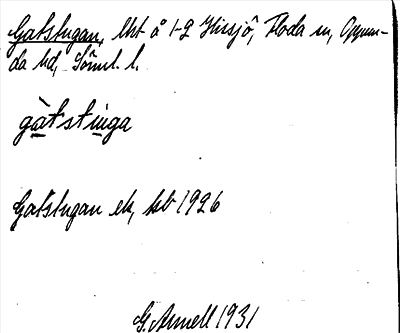 Gatstugan, lht å 1-2 Hissjö, Floda sn, Oppun-
da hd, Söml. l.
gàtstinga
Gatstugan ek, kb 1926
G. Arnell 1931